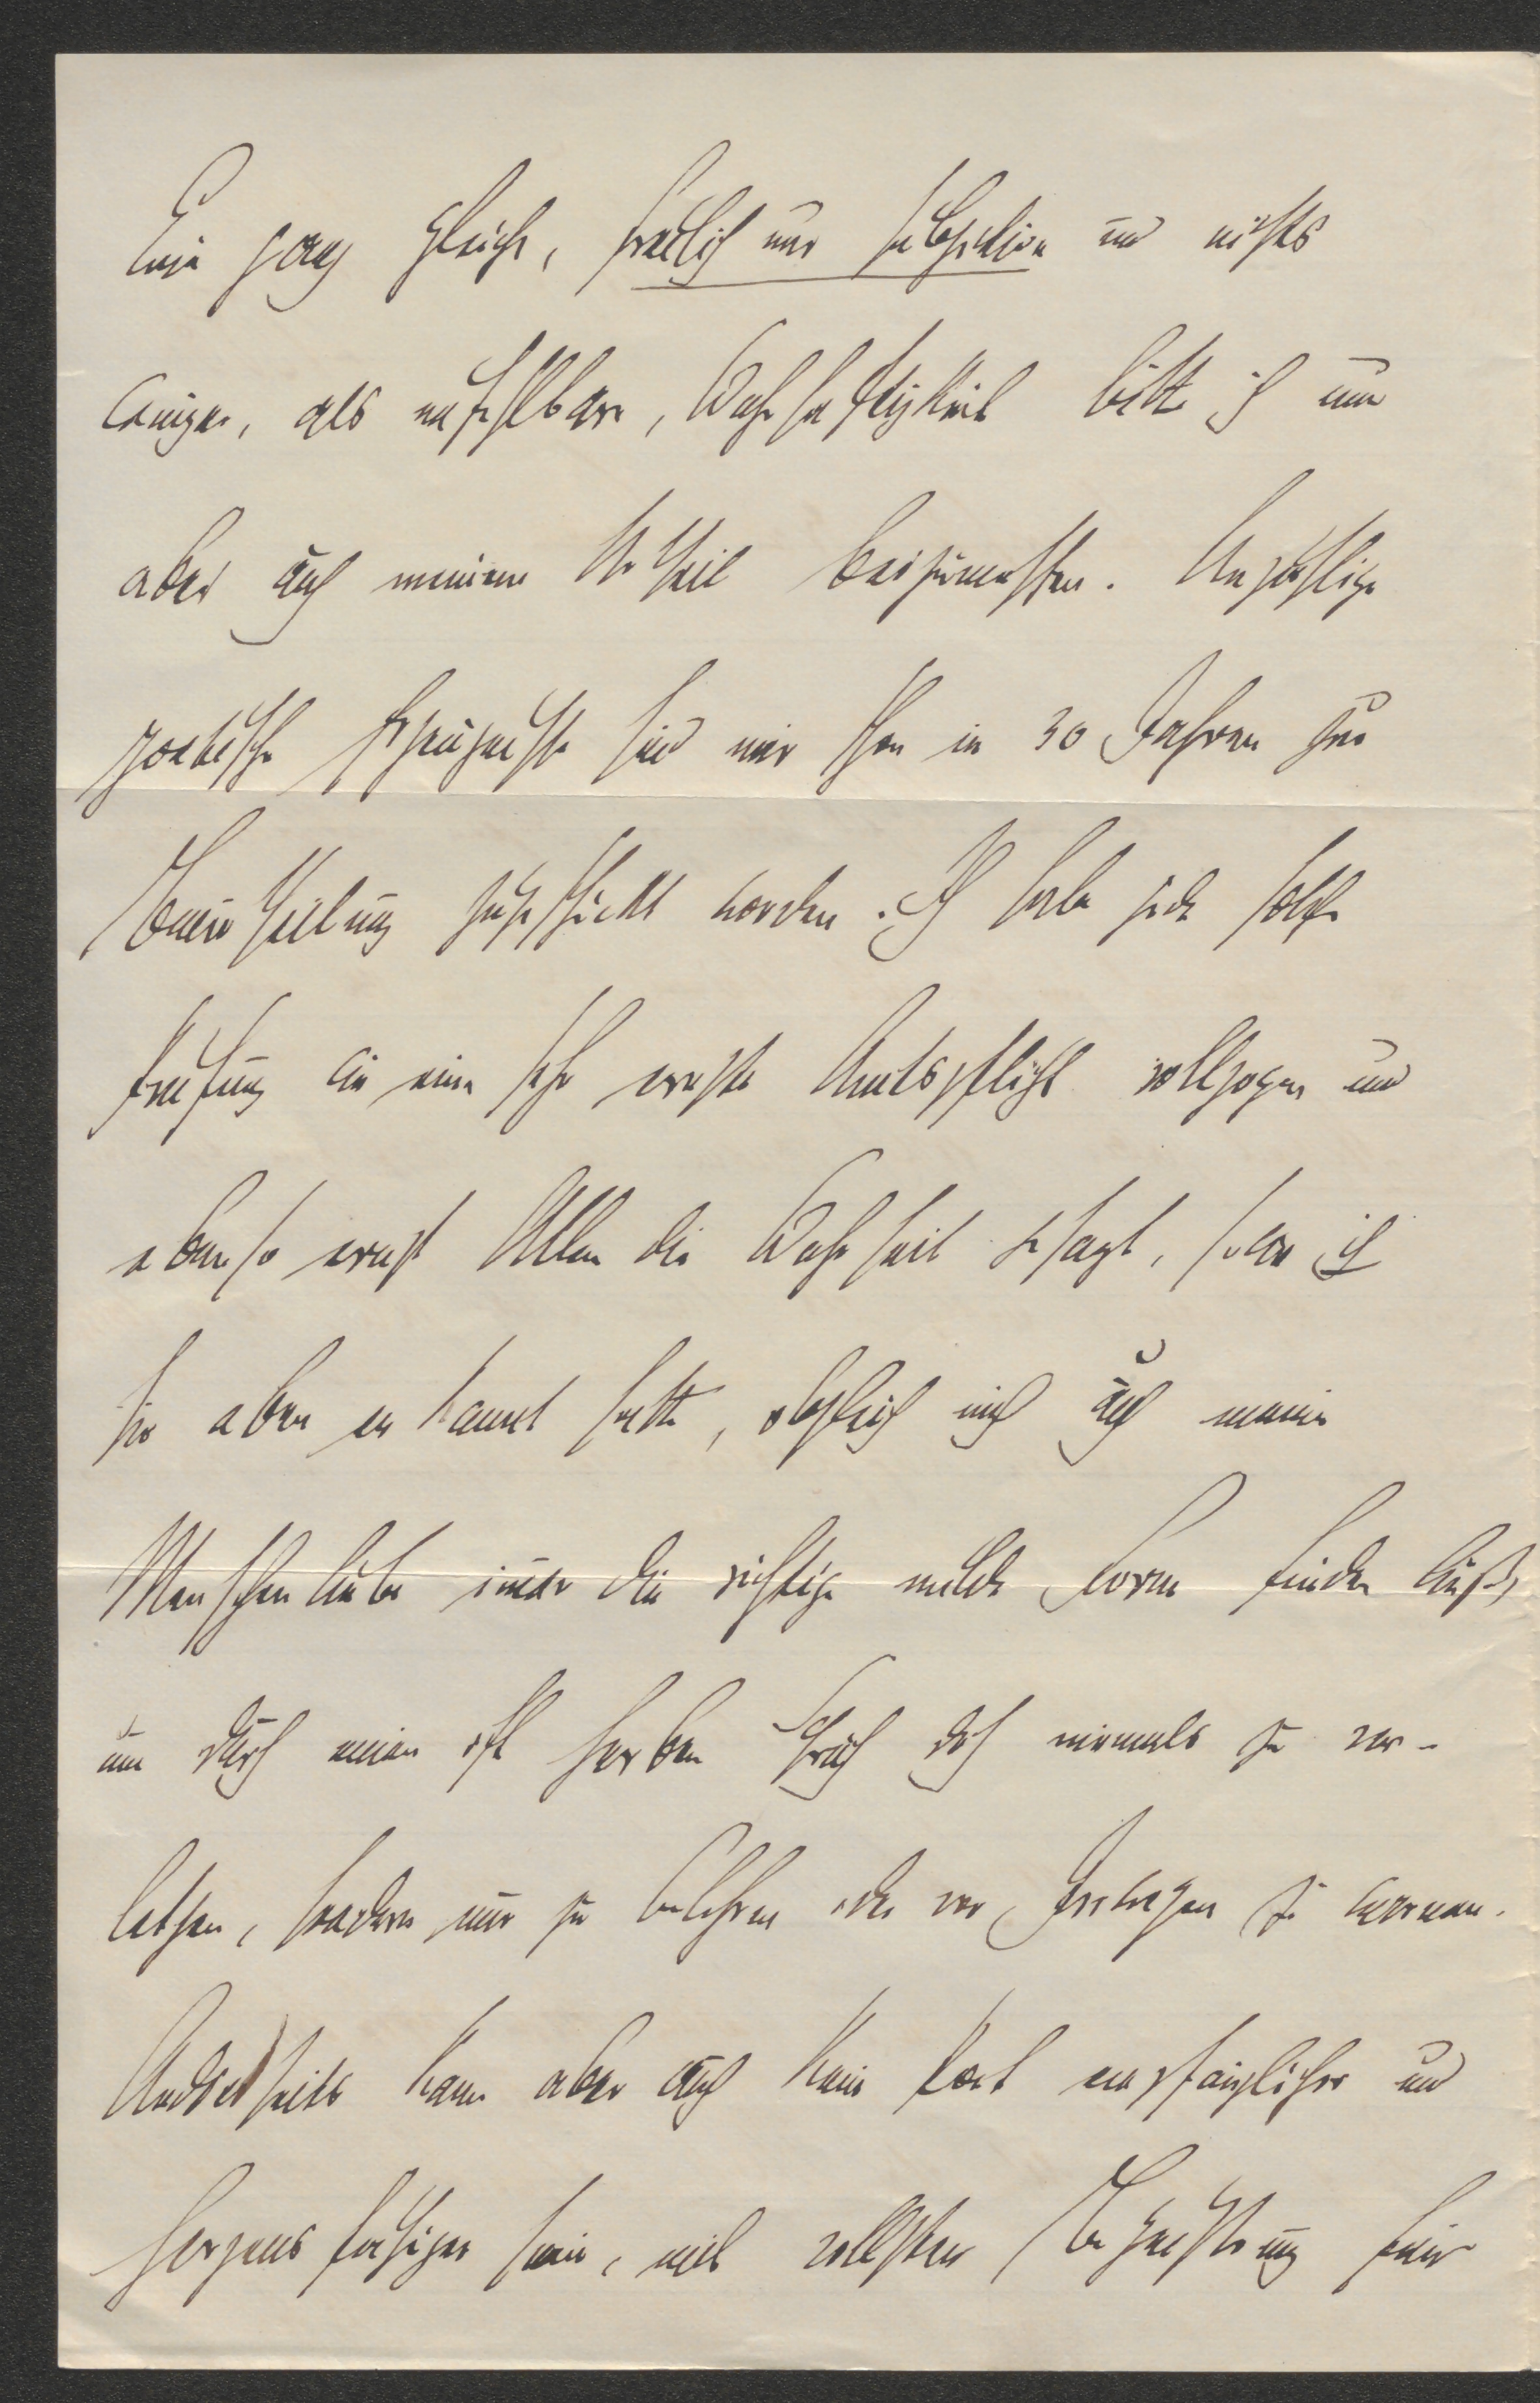 Eine ganz gleiche, freilich nur subjektive und nichts
weniger, als unfehlbare, Wahrhaftigkeit bitte ich nun
aber auch meinem Urtheil beizumessen. Unzählige
poetische Erzeugnisse sind mir schon in 30 Jahren zur
Beurtheilung zugeschickt worden. Ich habe jede solche
Prüfung wie eine sehr ernste Amtspflicht vollzogen und
ebenso ernst Allen die Wahrheit gesagt, sowie ich
sie eben erkannt hatte, obgleich mich auch meine
Menschenliebe immer die richtige milde Form finden ließ,
um durch meinen oft herben Spruch doch niemals zu ver-
letzen, sondern nur zu belehren oder vor Irrwegen zu warnen.
Anderseits kann aber auch kein Poet empfänglicher und
herzensfähiger sein, mit vollster Begeisterung für